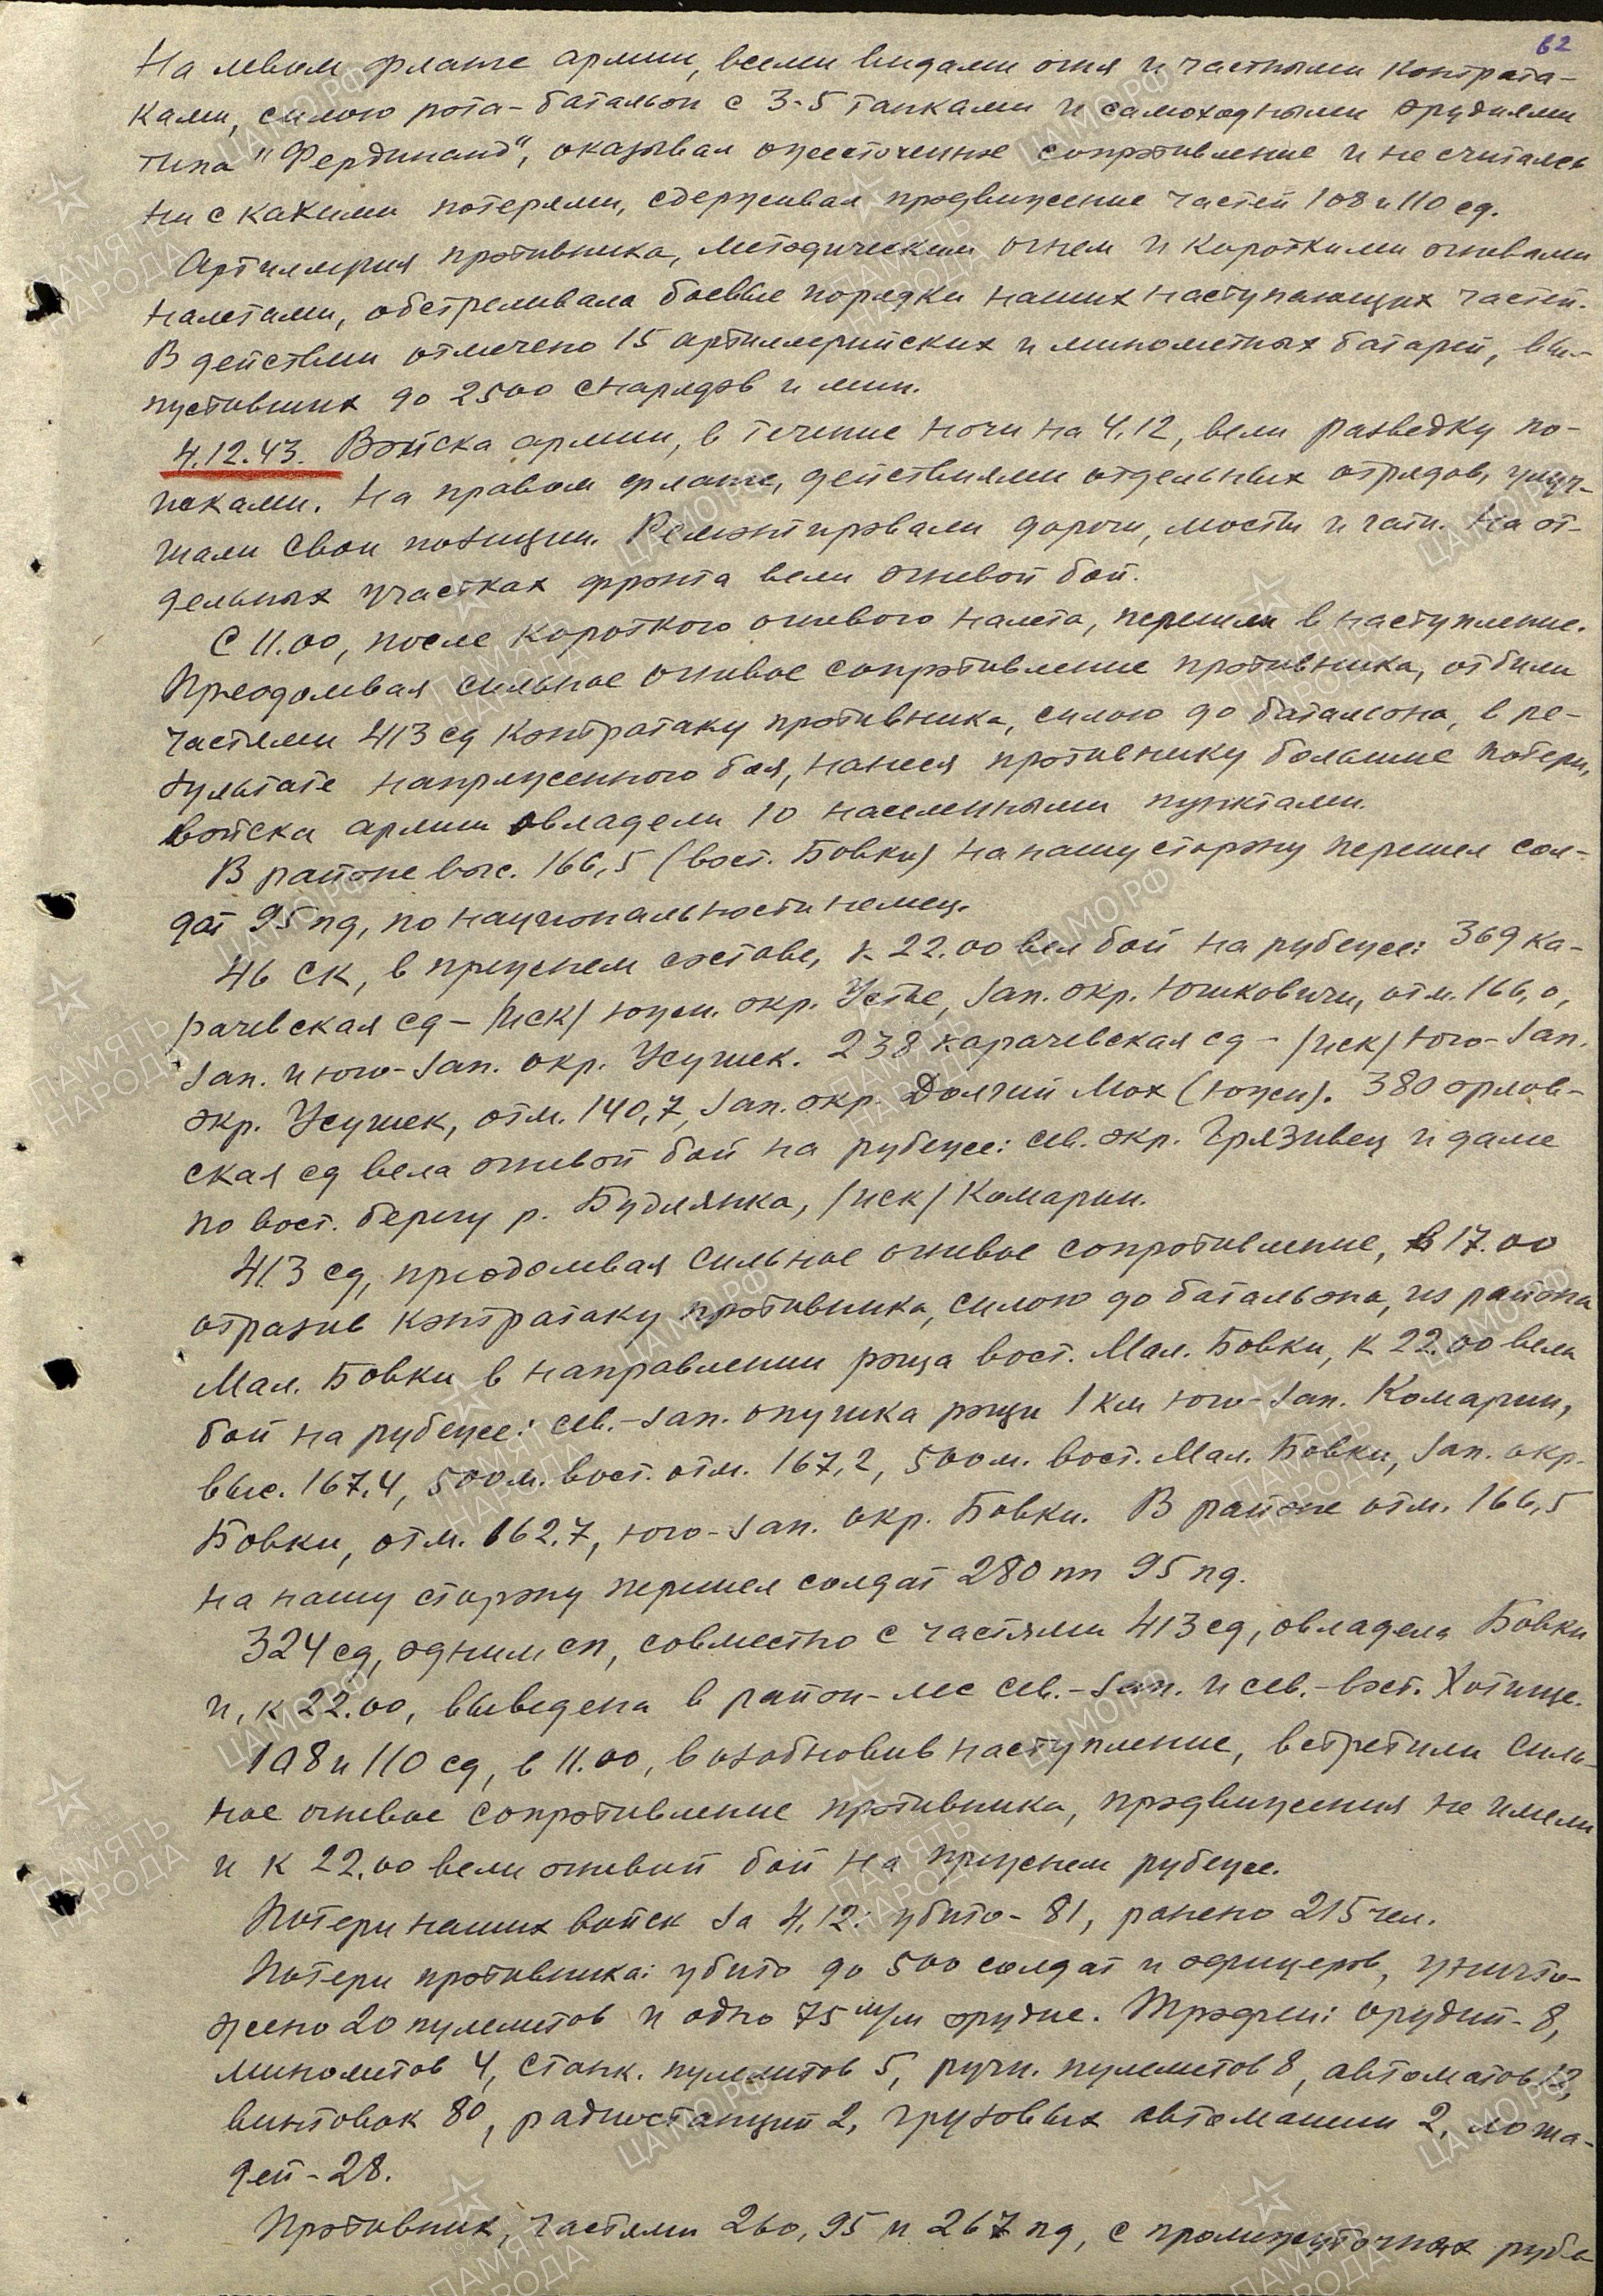 62
На левом фланге армии, всеми видами огня и частными контрата-
ками, силою рота-батальон с 3-5 танками и самоходными орудиями
типа "Фердинанд", оказывал ожесточенное сопротивление и не считаясь
ни с какими потерями, сдерживал продвижение частей 108 и 110 сд.
Артиллерия противника, методическим огнем и короткими огневыми
налетами, обстреливала боевые порядки наших наступающих частей.
В действии отмечено 15 артиллерийских и минометных батарей, вы-
пустивших до 2500 снарядов и мин.
4.12.43. Войска армии, в течение ночи на 4.12, вели разведку по-
исками. На правом фланге, действиями отдельных отрядов, улуч-
шали свои позиции. Ремонтировали дороги, мосты и гати. На от-
дельных участках фронта вели огневой бой.
С 11.00, после короткого огневого налета, перешли в наступление.
Преодолевая сильное огневое сопротивление противника, отбили
частями 413 сд контратаку противника, силою до батальона, в ре-
зультате напряженного боя, нанеся противнику большие потери,
войска армии овладели 10 населенными пунктами.
В районе выс. 166,5 (вост. Бовки) на нашу сторону перешел сол-
дат 95 пд, по национальности немец.
46 ск, в прежнем составе, к 22.00 вел бой на рубеже: 369 ка-
рачевская сд - /иск/ южн. окр. Устье, зап. окр. Юшковичи, отм. 166,0,
зап. и юго-зап. окр. Усушек. 238 карачевская сд - /иск/ юго-зап.
окр. Усушек, отм. 140,7, зап. окр. Долгий Мох (южн). 380 орлов-
ская сд вела огневой бой на рубеже: сев. окр. Грязивец и далее
по вост. берегу р. Будлянка, /иск/ Комарин.
413 сд, преодолевая сильное огневое сопротивление, в 17.00
отразив контратаку противника, силою до батальона, из района
Мал. Бовки в направлении роща вост. Мал. Бовки, к 22.00 вела
бой на рубеже: сев.-зап. опушка рощи 1 км юго-зап. Комарин,
выс. 167,4, 500 м. вост. отм. 167,2, 500 м. вост. Мал. Бовки, зап. окр.
Бовки, отм. 162,7, юго-зап. окр. Бовки. В районе отм. 166,5
на нашу сторону перешел солдат 280 пп 95 пд.
324 сд, одним сп, совместно с частями 413 сд, овладела Бовки
и, к 22.00, выведена в район-лес сев.-зап. и сев.-вост. Хотище.
108 и 110 сд, в 11.00, возобновив наступление, встретили силь-
ное огневое сопротивление противника, продвижения не имели
и к 22.00 вели огневой бой на прежнем рубеже.
Потери наших войск за 4.12: убито - 81, ранено 215 чел.
Потери противника: убито до 500 солдат и офицеров, уничто-
жено 20 пулеметов и одно 75 м/м орудие. Трофеи: орудий - 8,
минометов 4, станк. пулеметов 5, ручн. пулеметов 8, автоматов
винтовок 80, радиостанций 2, грузовых автомашин 2, лоша-
дей - 28.
Противник, частями 260, 95 и 267 пд, с промежуточных рубе